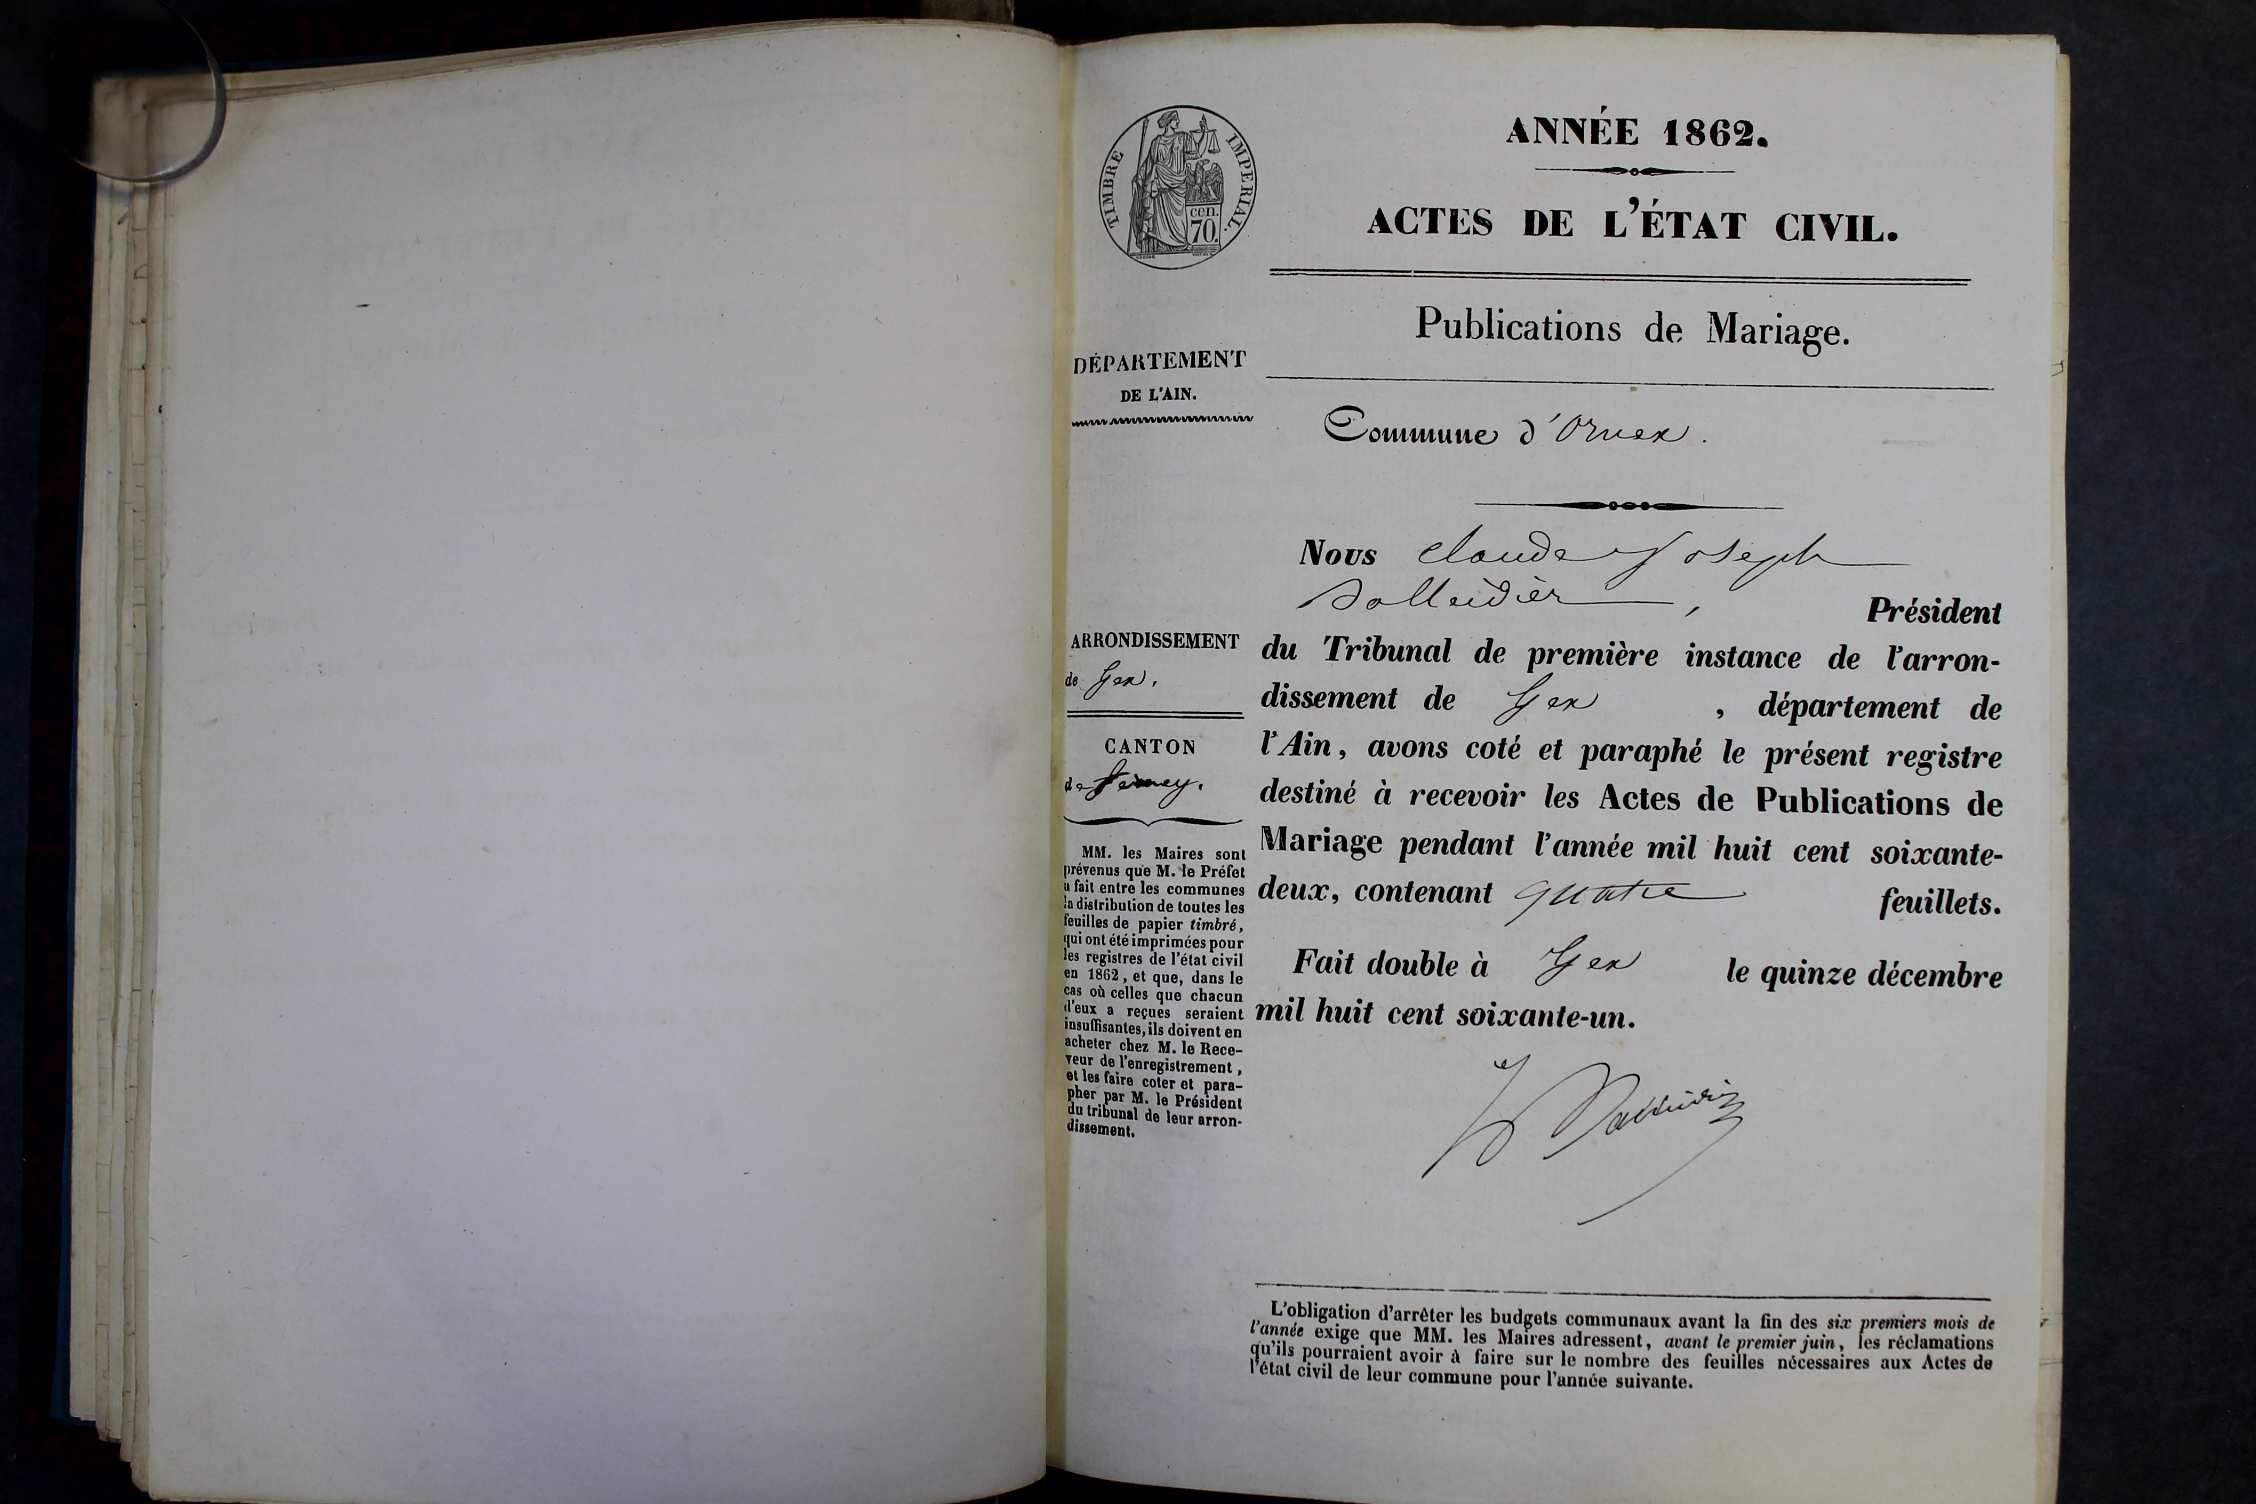 TIMBRE IMPERIAL.
cen.
70.
ANNÉE 1862.
ACTES DE L'ÉTAT CIVIL.
Publications de Mariage.
DÉPARTEMENT
DE L'AIN.
Commune d'Ornex.
ARRONDISSEMENT
de Gex.
CANTON
de Ferney.
MM. les Maires sont
prévenus que M. le Préfet
a fait entre les communes
la distribution de toutes les
feuilles de papier timbré,
qui ont été imprimées pour
les registres de l'état civil
en 1862, et que, dans le
cas où celles que chacun
d'eux a reçues seraient
insuffisantes, ils doivent en
acheter chez M. le Rece-
veur de l'enregistrement,
et les faire coter et para-
pher par M. le Président
du tribunal de leur arron-
dissement.
Nous Claude Joseph
, Président
du Tribunal de première instance de l'arron-
dissement de Gex, département de
l'Ain, avons coté et paraphé le présent registre
destiné à recevoir les Actes de Publications de
Mariage pendant l'année mil huit cent soixante-
deux, contenant quatre feuillets.
Fait double à Gex le quinze décembre
mil huit cent soixante-un.
L'obligation d'arrêter les budgets communaux avant la fin des six premiers mois de
l'année exige que MM. les Maires adressent, avant le premier juin, les réclamations
qu'ils pourraient avoir à faire sur le nombre des feuilles nécessaires aux Actes de
l'état civil de leur commune pour l'année suivante.